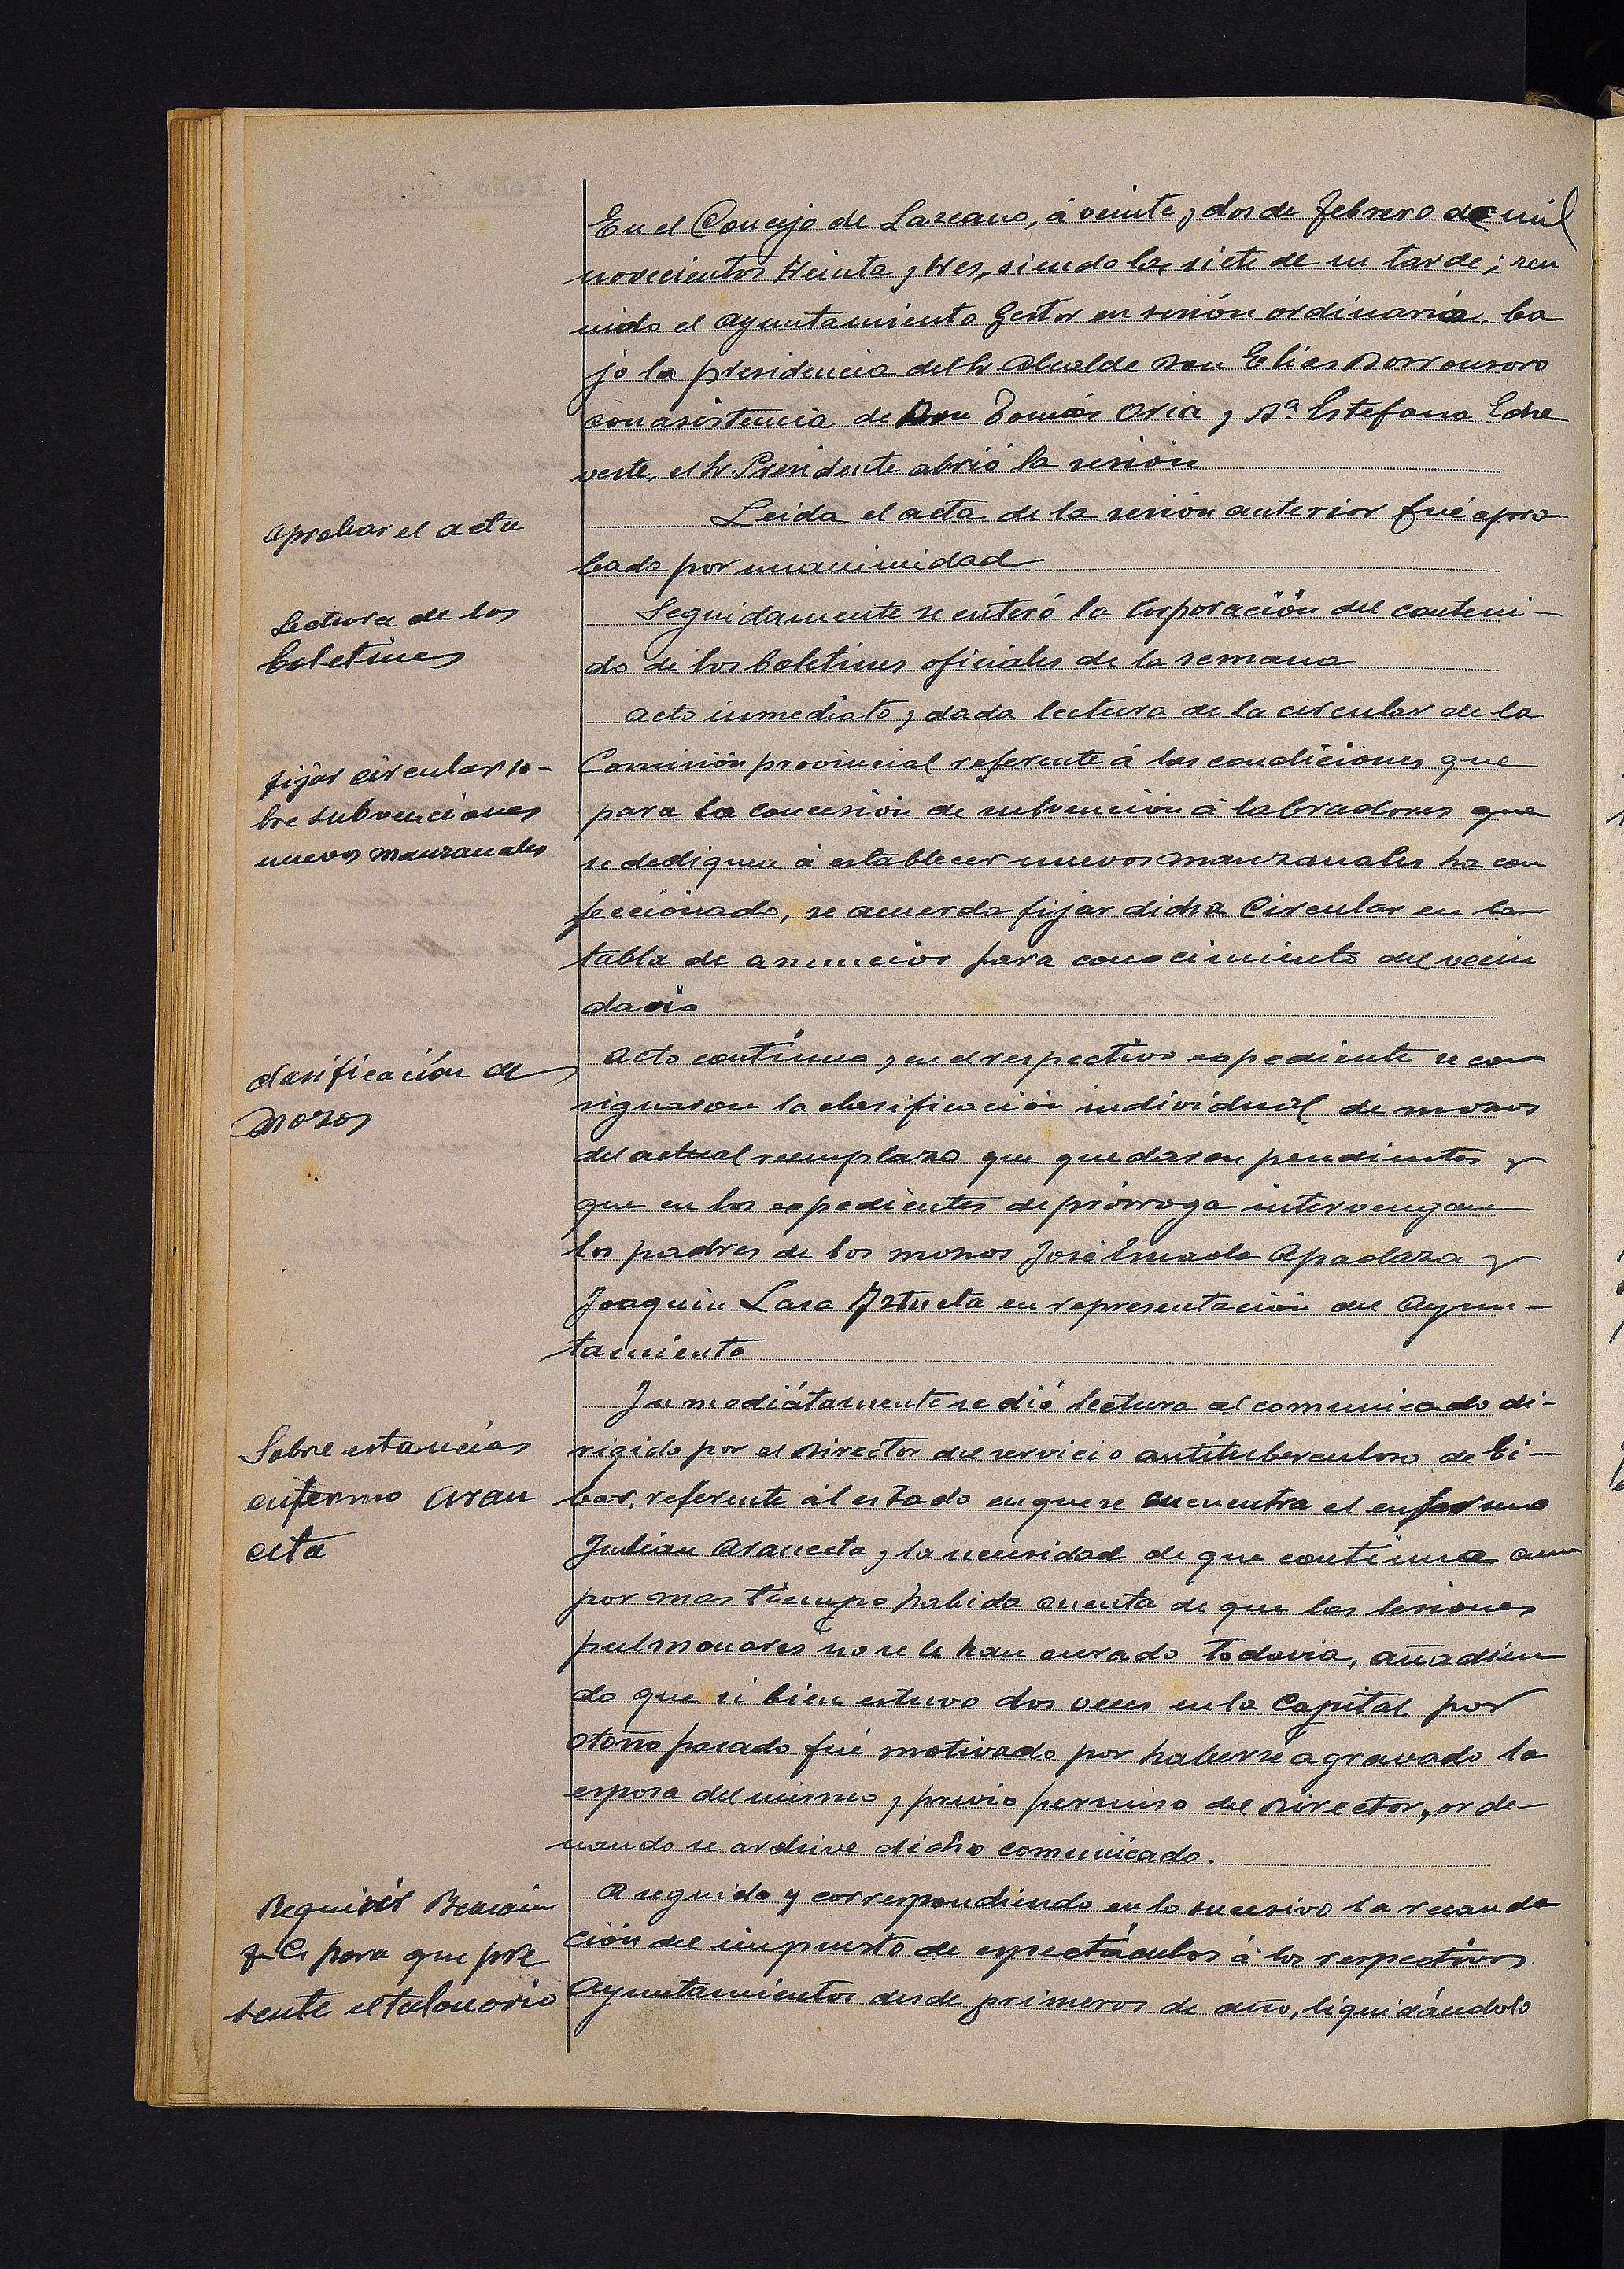 En el Concejo de Lazcano, á veinte y dos de Febrero de mil
novecientos treinta y tres, siendo las siete de su tarde; reu
nido el Ayuntamiento Gestor en sesión ordinaria, ba
jo la presidencia del Sr Alcalde Don Elias Dorronsoro
con asistencia de Don Tomás Oria y Dª Estefana Eche
veste, el Sr. Presidente abrió la sesión
Aprobar el acta
Leida el acta de la sesión anterior fué apro
bada por unanimidad
Lectura de los
boletines
Seguidamente se enteró la Corporación del conteni-
do de los boletines oficiales de la semana
fijar circular so-
bre subvenciones
nuevos manzanales
Acto inmediato y dada lectura de la circular de la
Comisión provincial referente á las condiciones que
para la concesión de subvención á labradores que
se dediquen á establecer nuevos manzanales ha con
feccionado, se acuerda fijar dicha Circular en la
tabla de anuncios para conocimiento del vecin
dario
clasificación de
Mozos
Acto contínuo y en el respectivo expediente se con
signaron la clasificación individual de mozos
del actual reemplazo que quedaron pendientes y
que en los expedientes de prórroga intervengan
los padres de los mozos José Apaolaza y
Joaquin Lasa Iztueta en representación del Ayun-
tamiento
Sobre estancias
enfermo Aran
ceta
Inmediátamente se dió lectura al comunicado di-
rigido por el Director del servicio antituberculoso de Ei-
bar, referente al estado en que se encuentra el enfermo
Julian Aranceta y la necesidad de que continua aun
por mas tiempo habida cuenta de que las lesiones
pulmonares no se le han curado todavia, añadien
do que si bien estuvo dos veces en la Capital por
otoño pasado fué motivado por haberse agravado la
esposa del mismo y previo permiso del Director, orde-
nando se archive dicho comunicado.
Requirir Beasain
y Cª para que pre
sente el talonario
A seguido y correspondiendo en lo sucesivo la recauda
ción del impuesto de espectáculos á los respectivos
Ayuntamientos desde primeros de año, liquidándolo